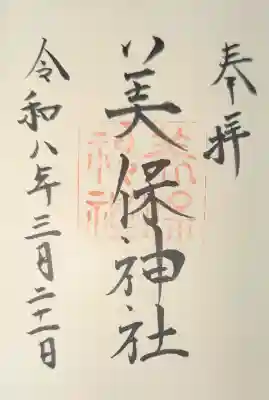 奉拝
美保神社
美保
神社
令和八年三月二十一日